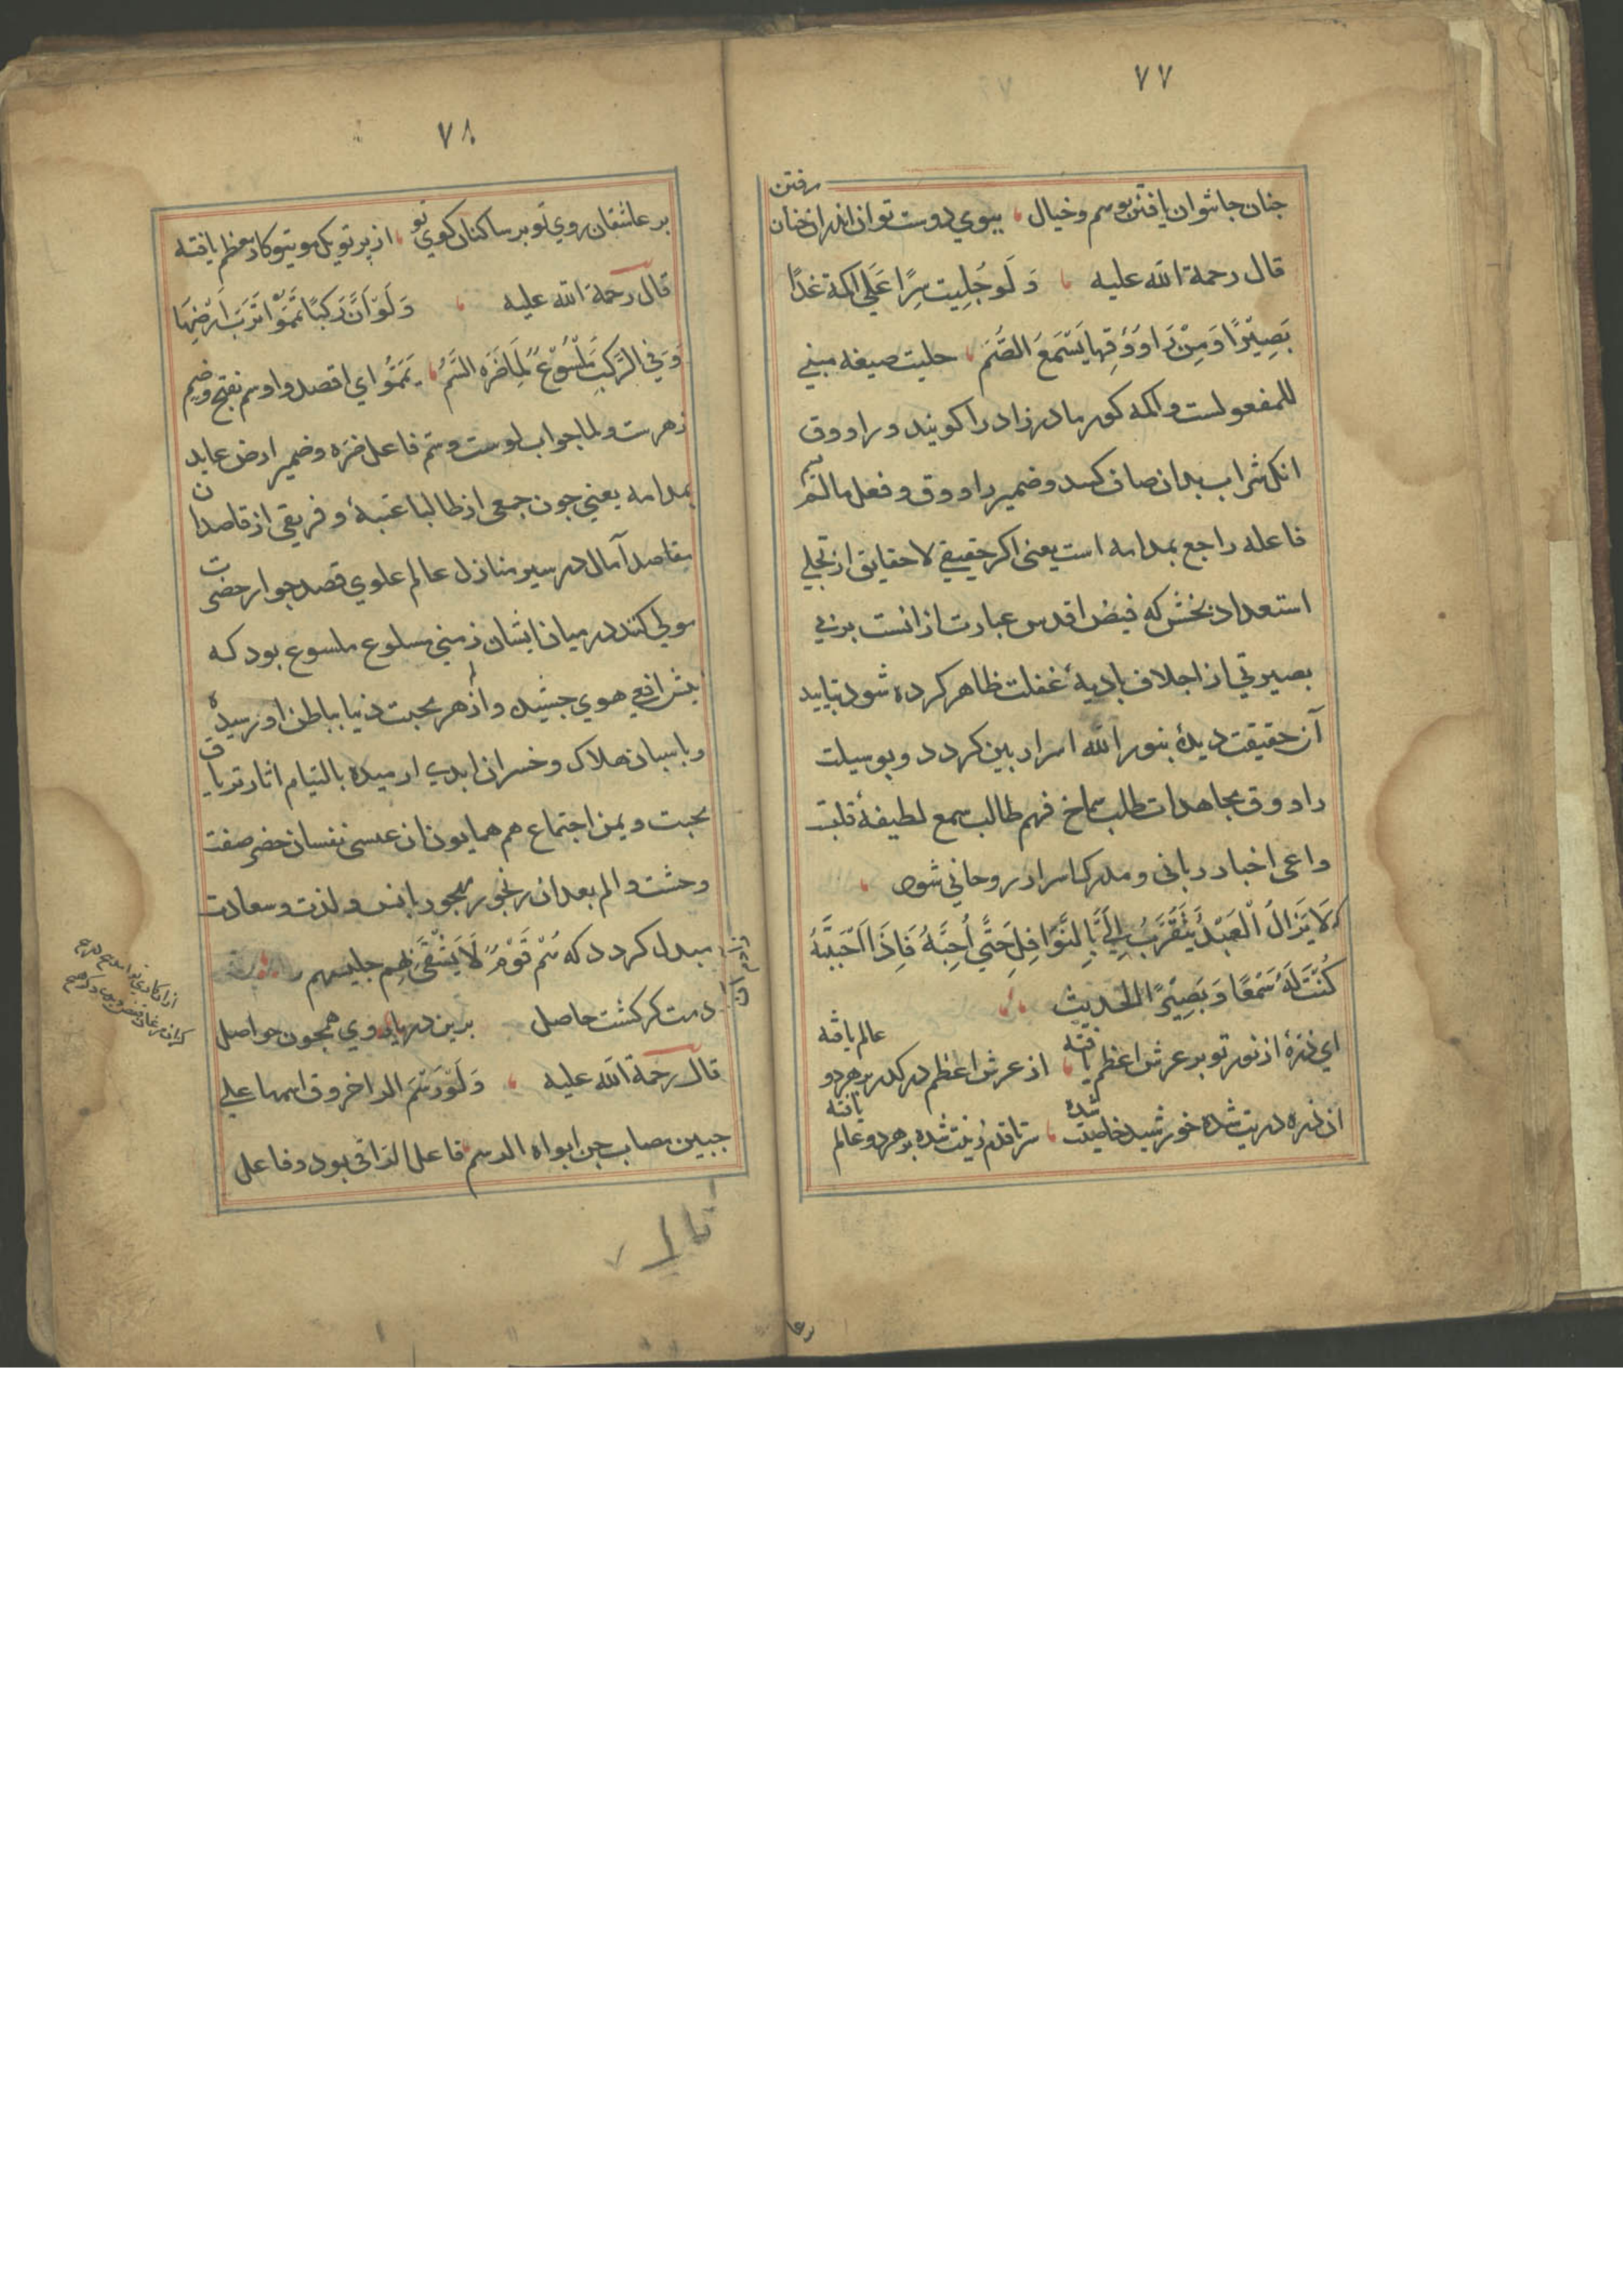 ٧٧
رفتن
جنان جا توان یافتن بوسم وخیال ببوي دوست توان اندران خنان
قال رحمة الله علیه وَلَو جُلِیت سِرًا عَلَی اکمة غدًا
بَصِیْرًا وَمِنْ رَاوَوُقِهِا یَسْمَعُ الصُّمَ جلیت صیغه مبني
للمفعولست واکمه کور مادرزاد را کویند و راووق
انکه شراب بدان صاف کنند وضمیر راووق وفعل مالم یسم
فاعله راجع بمدامه است یعنی اکر حقیقي لا حقایق از تجلي
استعداد بخش که فیض اقدس عبارت از انست بر بي
بصیرتي از اجلاف بادیهٔ غفلت ظاهر کرده شود بتایید
آن حقیقت دیدهٔ بنور الله اسرار بین کردد و بوسیلت
راووق مجاهدات طلب سماخ فهم طالب سمع لطیفهٔ قلبت
واعی اخبار ربانی و مدرک اسرار روحاني شود
که لَا یَزَالُ الْعَبْدُ یَتَقَرَّبُ اِلَيَّ بِالنَّوَافِلِ حَتَّي اُحِبَّهُ فَاِذَا اَحْبَبْتَهُ
کُنْتَ لَهُ سَمْعًا وَ بَصِیْرًا الحَدِیث
اي ذرهٔ از نور تو بر عرش اعظم یافته از عرش اعظم در کذر بر هر دو عالم یافته
ان ذره ذریت شده خورشید خاصیت شده سر تا قدم زینت شده بر هر دو عالم یافته
٧٨
بر عاشقان روي تو بر ساکنان کوي تو از پرتو یک موی تو کار معظم یافته
قال رحمة الله علیه وَلَوْ اَنَّ رَکبًا یَمَّمُوْا تُرْبَ اَرْضِهَا
وَ فِي الرَّکبِ مَلْسُوْعٌ لَمَا ضَرَّه السَّمُ یَمَّمُوا اي اقصدوا وسم بفتح وضم
زهرست و لما جواب لوست و سم فاعل ضرّه وضمیر ارض عاید
بمدامه یعني جون جمعی از طالبا عتبهٔ و فریقی از قاصدان
مقاصد آمال در سیر منازل عالم علوي قصد جوار حضرت
مولي کنند در میان ایشان زمني مسلوع ملسوع بود که
نیش افعي هوي جشیده و از زهر محبت دنیا بباطن او رسیده
و باسبان هلاک وخسران ابدي ارمیده بالتیام اثار تریاق
محبت و یمن اجتماع هم همایون ان عیسی نفسان خضر صفت
وحشت والم بعد ان رنجور مهجور بانس و لذت وسعادت
مبدل کردد که هُمْ قَوْمٌ لَا یَشْقَی بِهِم جلیسهم
دست کر کشت حاصل برین دریا روي همجون حواصل
قال رحمة الله علیه وَلَوْ رَسَم الراخروق اسمها علی
جبین مصاب جن ابراه الرسم فاعل الراقی بود وفاعل